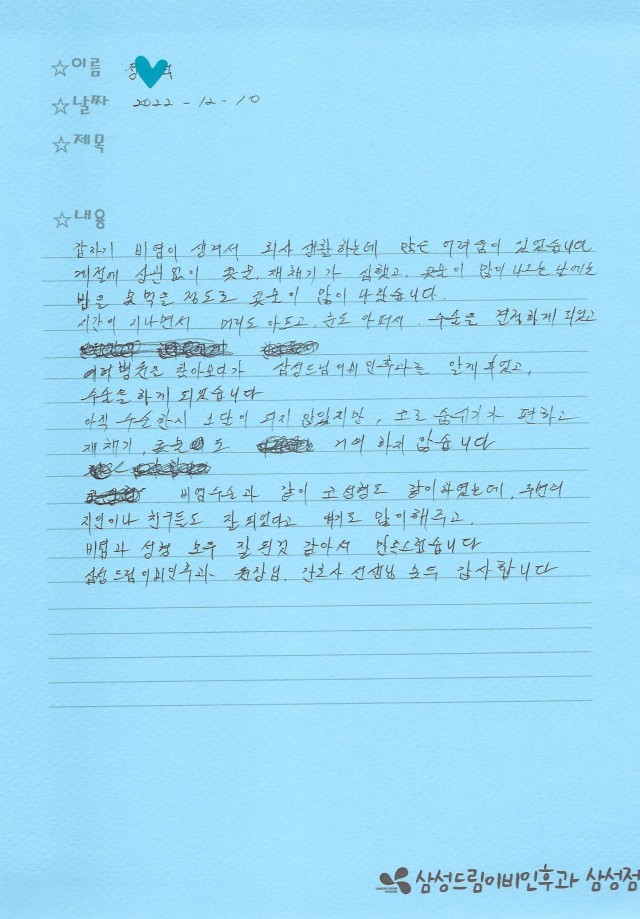 ☆이름 정
☆날짜 2022-12-10
☆제목
☆내용
갑자기 비염이 생겨서 회사 생활하는데 많은 어려움이 있었습니다
계절에 상관없이 콧물, 재채기가 심했고, 콧물이 많이 나오는 날에는
밥을 못먹을 정도로 콧물이 많이 나왔습니다.
시간이 지나면서 머리도 아프고, 눈도 아퍼서, 수술을 결정하게 되었고
여러병원을 찾아보다가 삼성드림이비인후과를 알게 되었고,
수술을 하게 되었습니다
아직 수술한지 오랜이 되지 않았지만, 코로 숨쉬기가 편하고
재채기, 콧물도 거의 하지 않습니다
비염수술과 같이 코성형도 같이하였는데, 주변의
지인이나 친구들도 잘되었다고 얘기도 많이해주고,
비염과 성형 모두 잘된것 같아서 만족스럽습니다
삼성드림이비인후과 원장님, 간호사 선생님 모두 감사합니다
삼성드림이비인후과 삼성점